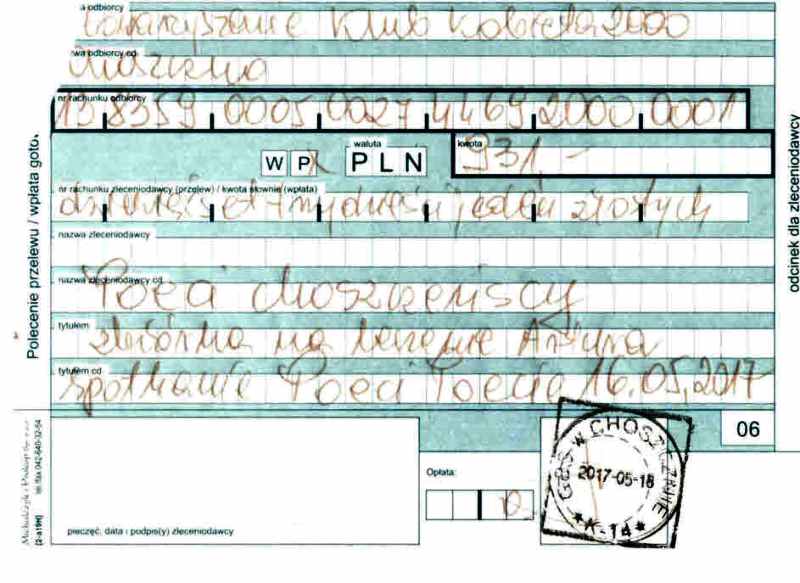 a odbiorcy
towarzyszenie Klub Kobieta 2000
wa odbiorcy cd
nr rachunku odbiorcy
13 8359 0005 0027 4469 2000 0001
waluta
kwota
W P PLN 931,-
nr rachunku zleceniodawcy (przelew) / kwota słownie (wpłata)
dziewięćset trzydzieści jeden złotych
nazwa zleceniodawcy
nazwa zleceniodawcy cd
Poeci choszczeńscy
tytułem
zbiórka na leczenie Artura
tytułem cd
spotkanie Poeci Poecie 16.05.2017
06
Opłata:
0
pieczęć, data i podpis(y) zleceniodawcy
GBS w CHOSZCZNIE
2017-05-18
*K-14*
Polecenie przelewu / wpłata gotów
odcinek dla zleceniodawcy
tel./fax 042-640-32-54